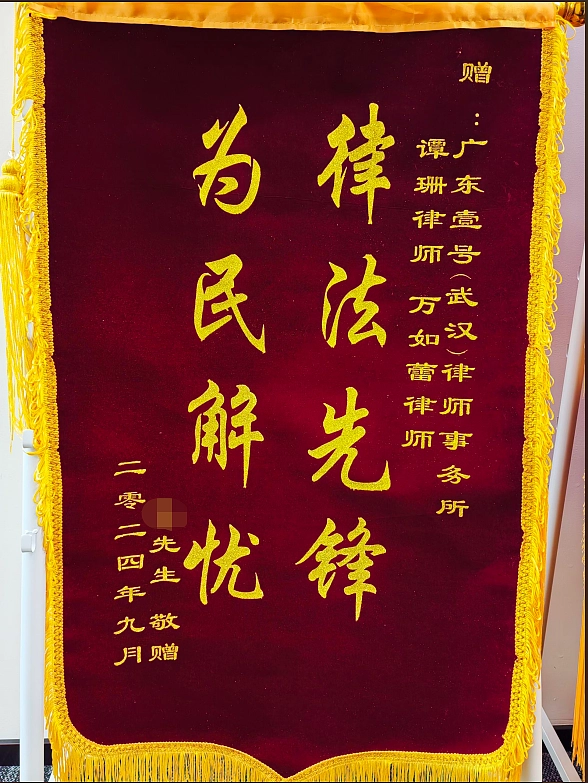 赠：广东壹号（武汉）律师事务所
谭珊律师 万如蕾律师
律法先锋
为民解忧
先生 敬赠
二零二四年九月